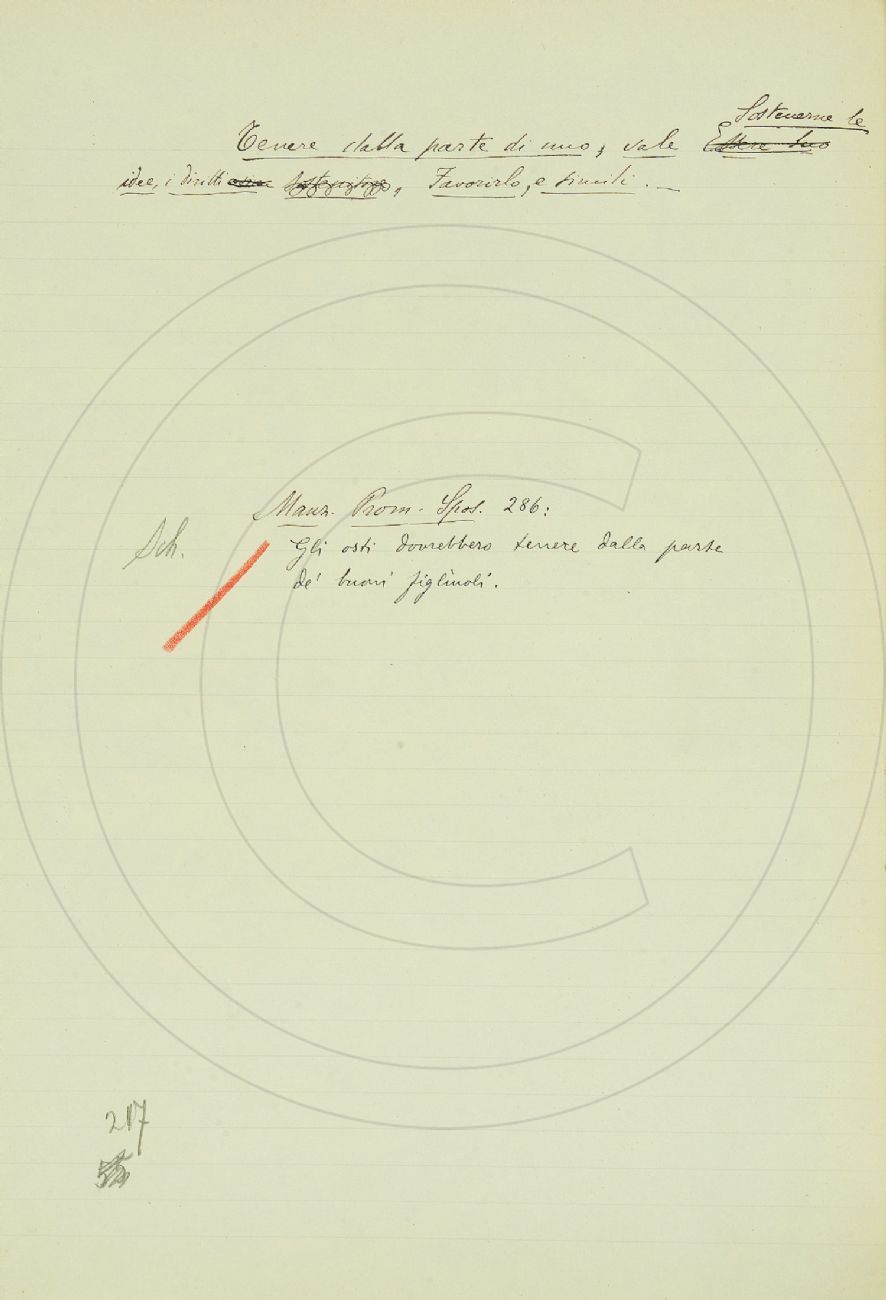 Sostenerne le
Tenere dalla parte di uno, vale Essere suo
idee, i diritti Sostenitore, Favorirlo, e simili. —
Manz. Prom. Spos. 286:
Sch.
Gli osti dovrebbero tenere dalla parte
de' buoni figliuoli.
217